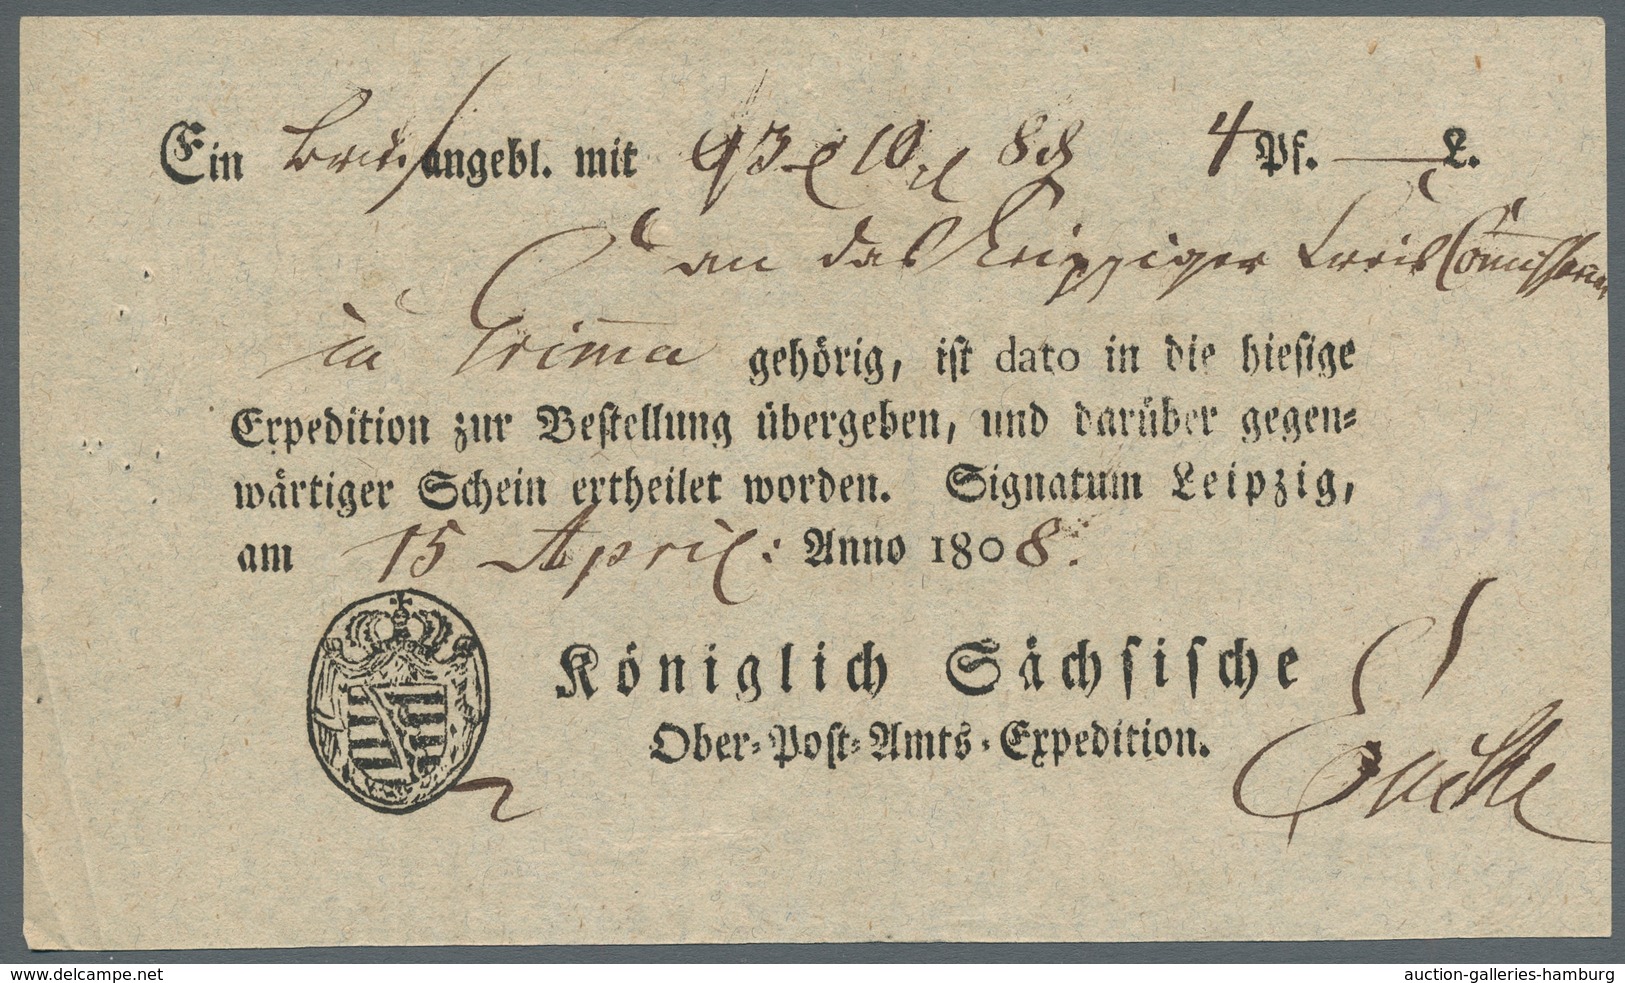 Ein Brief angebl. mit 93 10 8 4 Pf. L.
an das Leipziger Kreis Commissariat
in Grimma gehörig, ist dato in die hiesige
Expedition zur Bestellung übergeben, und darüber gegen-
wärtiger Schein ertheilet worden. Signatum Leipzig,
am 15 April: Anno 1808.
Königlich Sächsische
Ober-Post-Amts-Expedition.
www.delcampe.net
auction-galleries-hamburg